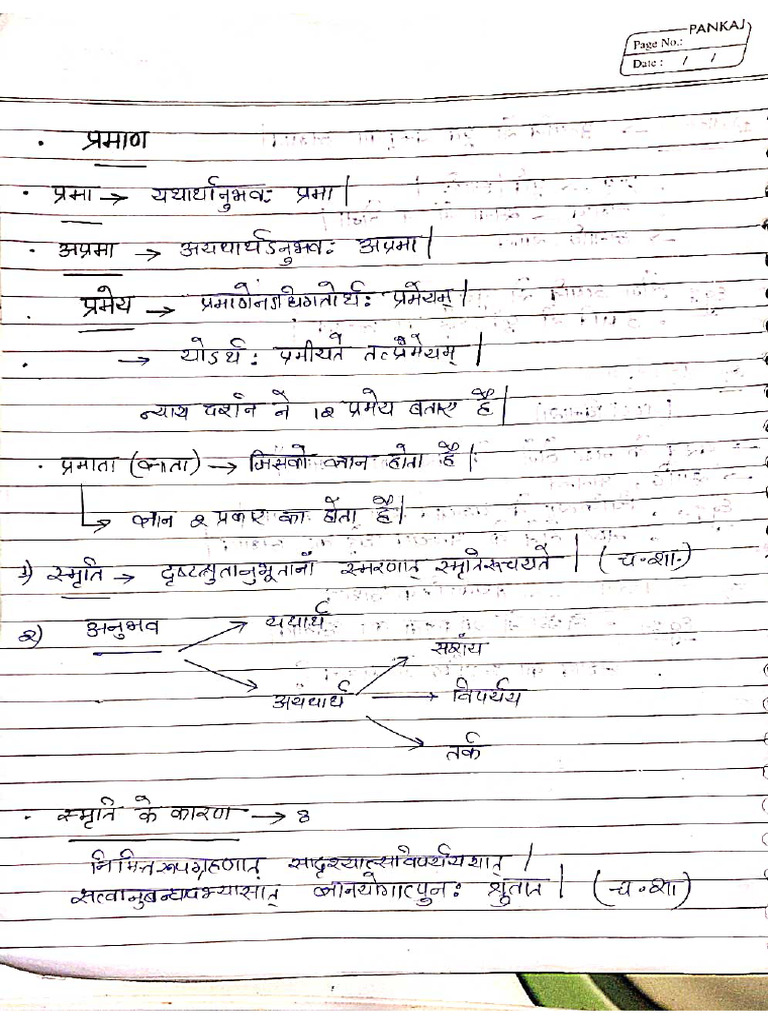 PANKAJ
Page No.:
Date : / /
• प्रमाण
• प्रमा → यथार्थानुभवः प्रमा |
• अप्रमा → अयथार्थऽनुभवः अप्रमा |
• प्रमेय → प्रमाणेनऽधिगतोर्थः प्रमेयम् |
• → योऽर्थः प्रमीयते तत्प्रमेयम् |
न्याय दर्शन ने 12 प्रमेय बताए है |
• प्रमाता (ज्ञाता) → जिसको ज्ञान होता है |
↳ ज्ञान २ प्रकार का होता है |
1) स्मृति → दृष्टश्रुतानुभूतानां स्मरणात् स्मृतिरूच्यते | (च.शा.)
२) अनुभव
यथार्थ
संशय
अयथार्थ → विपर्यय
तर्क
• स्मृति के कारण → 8
निमित्तरूपग्रहणात् सादृश्यात्सविपर्ययात् |
सत्वानुबन्धादभ्यासात् ज्ञानयोगात्पुनः श्रुतात | (च.शा)